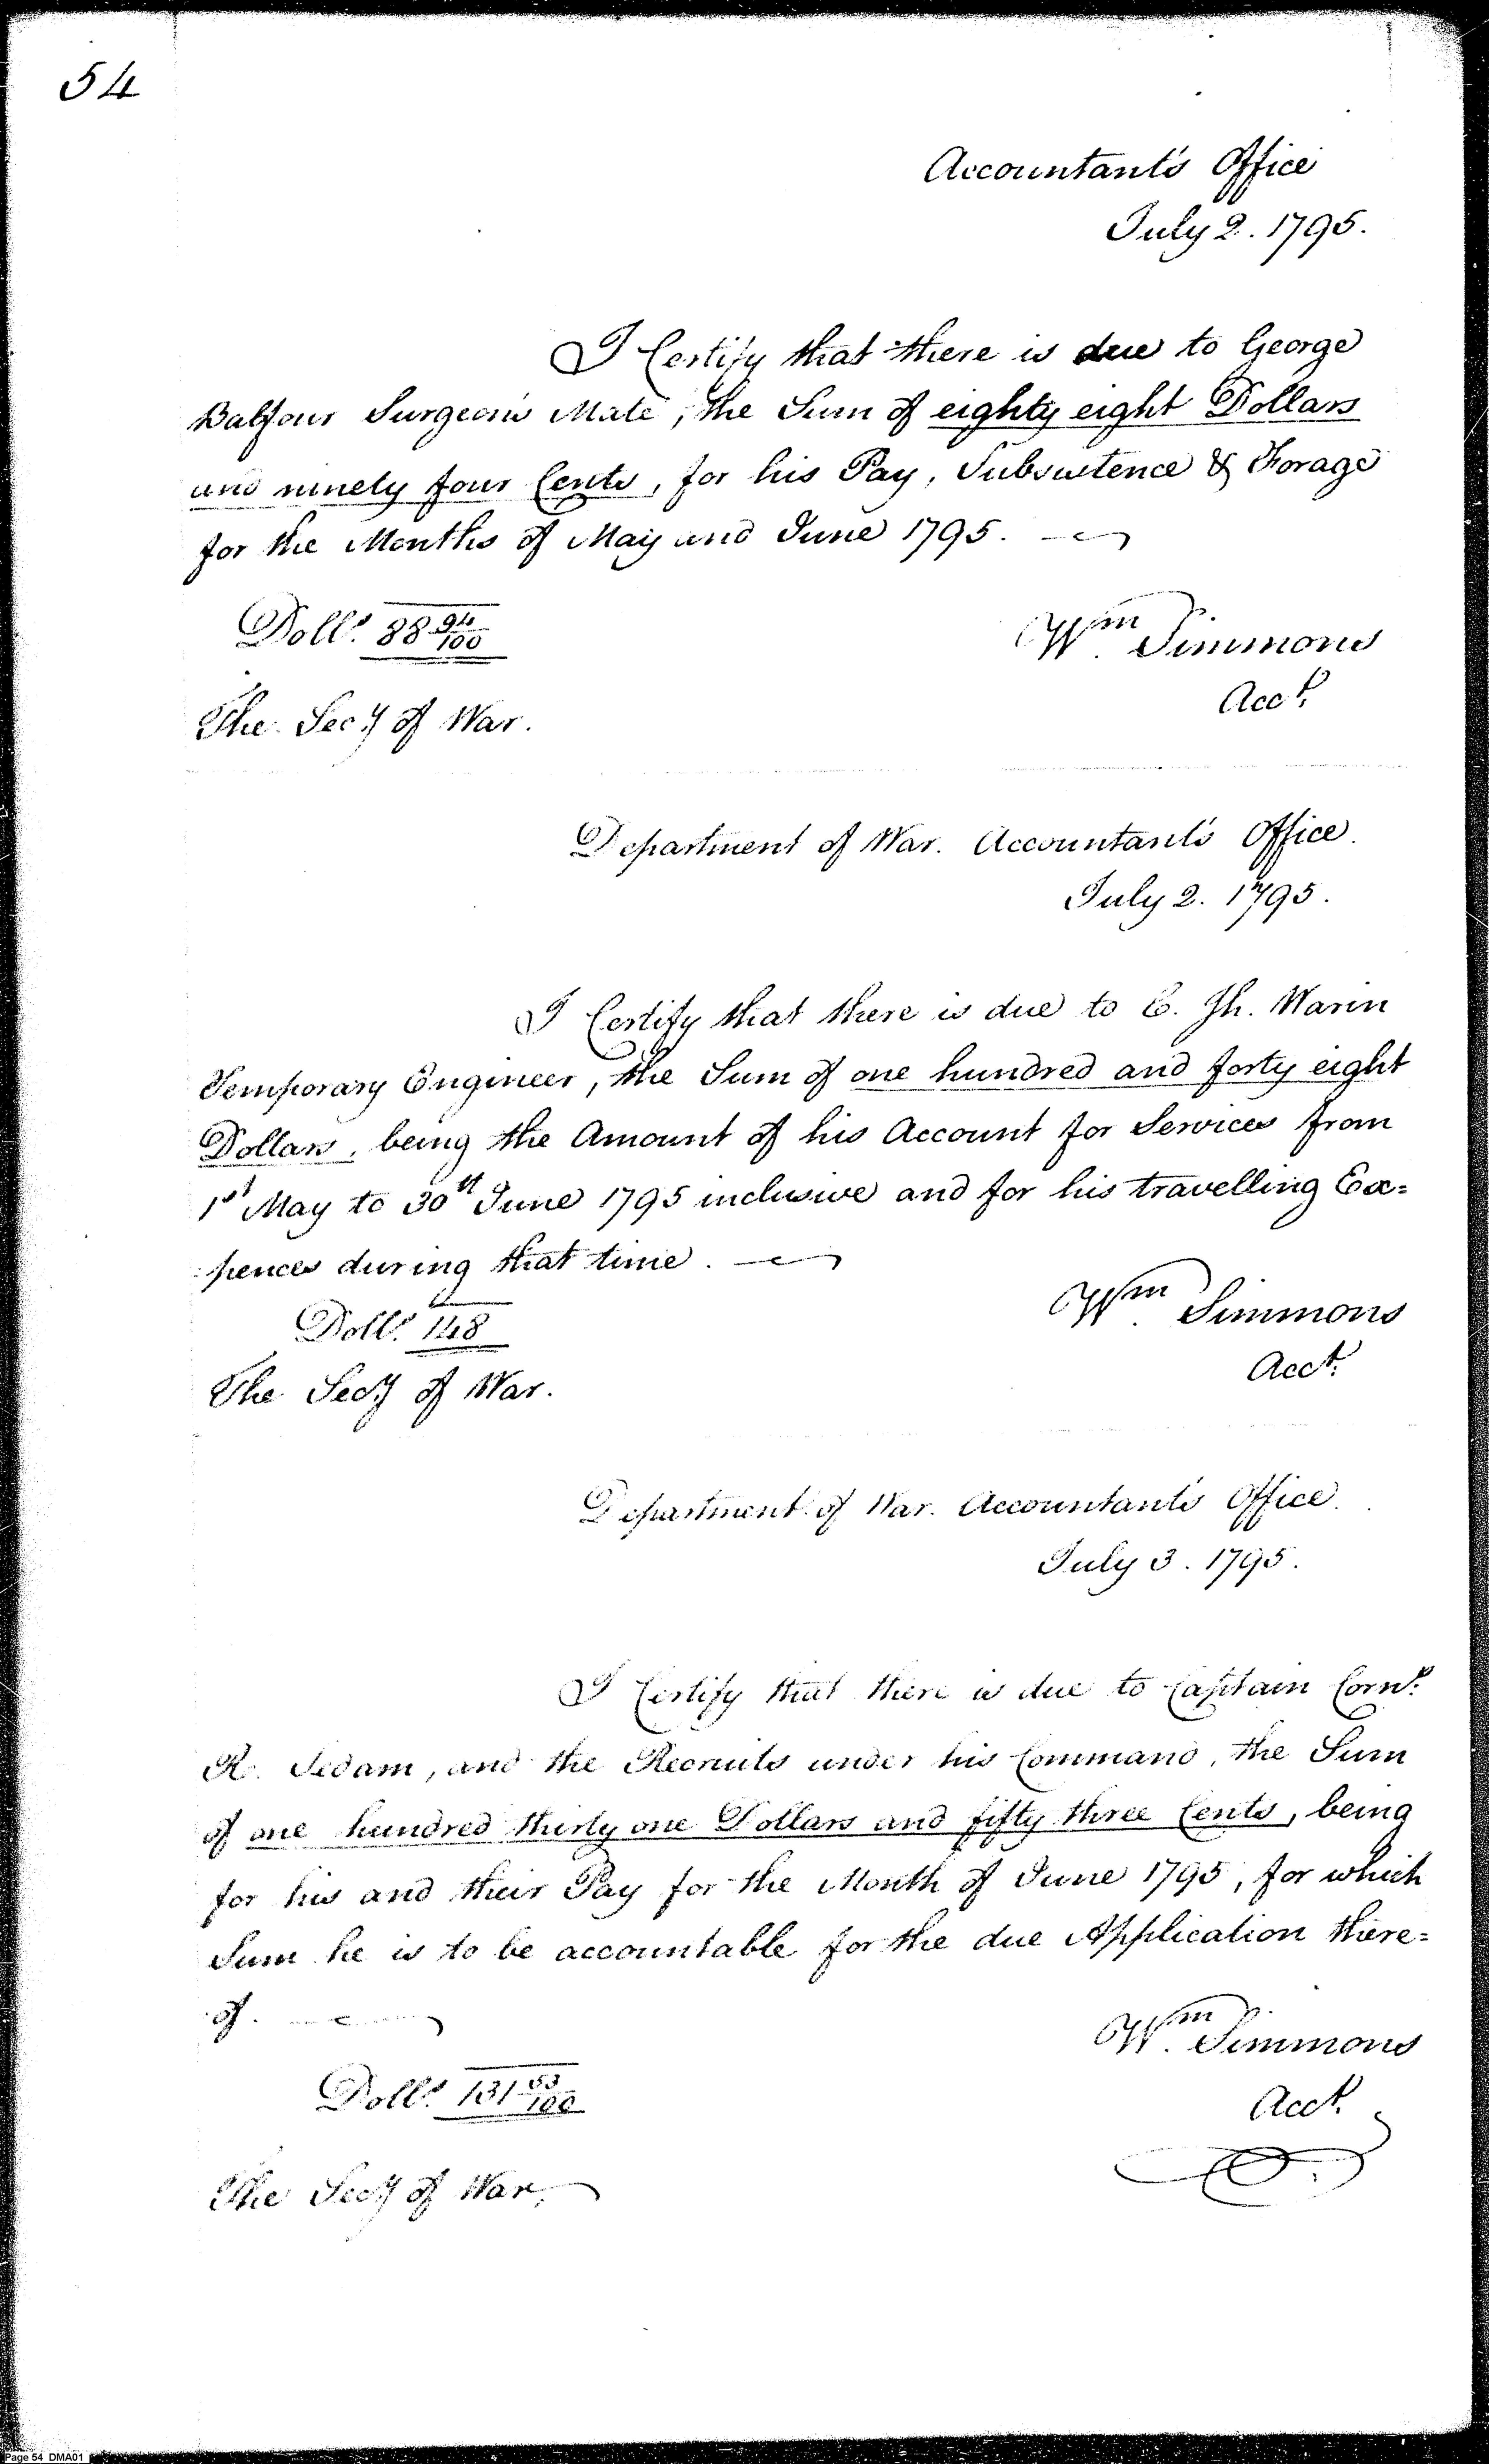 54
Accountant's Office
July 2. 1795.
I Certify that there is due to George
Balfour Surgeon's Mate, the Sum of eighty eight Dollars
and ninety four Cents, for his Pay, Subsistence & Forage
for the Months of May and June 1795.
Dolls. 88 94/100
Wm Simmons
Acct.
The Secy of War.
Department of War. Accountant's Office.
July 2. 1795.
I Certify that there is due to C. Jh. Warin
Temporary Engineer, the Sum of one hundred and forty eight
Dollars, being the Amount of his Account for Services from
1st May to 30th June 1795 inclusive and for his travelling Ex=
:pences during that time.
Dolls. 148
Wm Simmons
Acct.
The Secy of War.
Department of War. Accountant's Office.
July 3. 1795.
I Certify that there is due to Captain Corns.
R. Sedam, and the Recruits under his Command, the Sum
of one hundred thirty one Dollars and fifty three Cents, being
for his and their Pay for the Month of June 1795, for which
Sum he is to be accountable for the due Application there=
:of.
Wm Simmons
Dolls. 131 53/100
Acct.
The Secy of War.
Page 54 DMA01